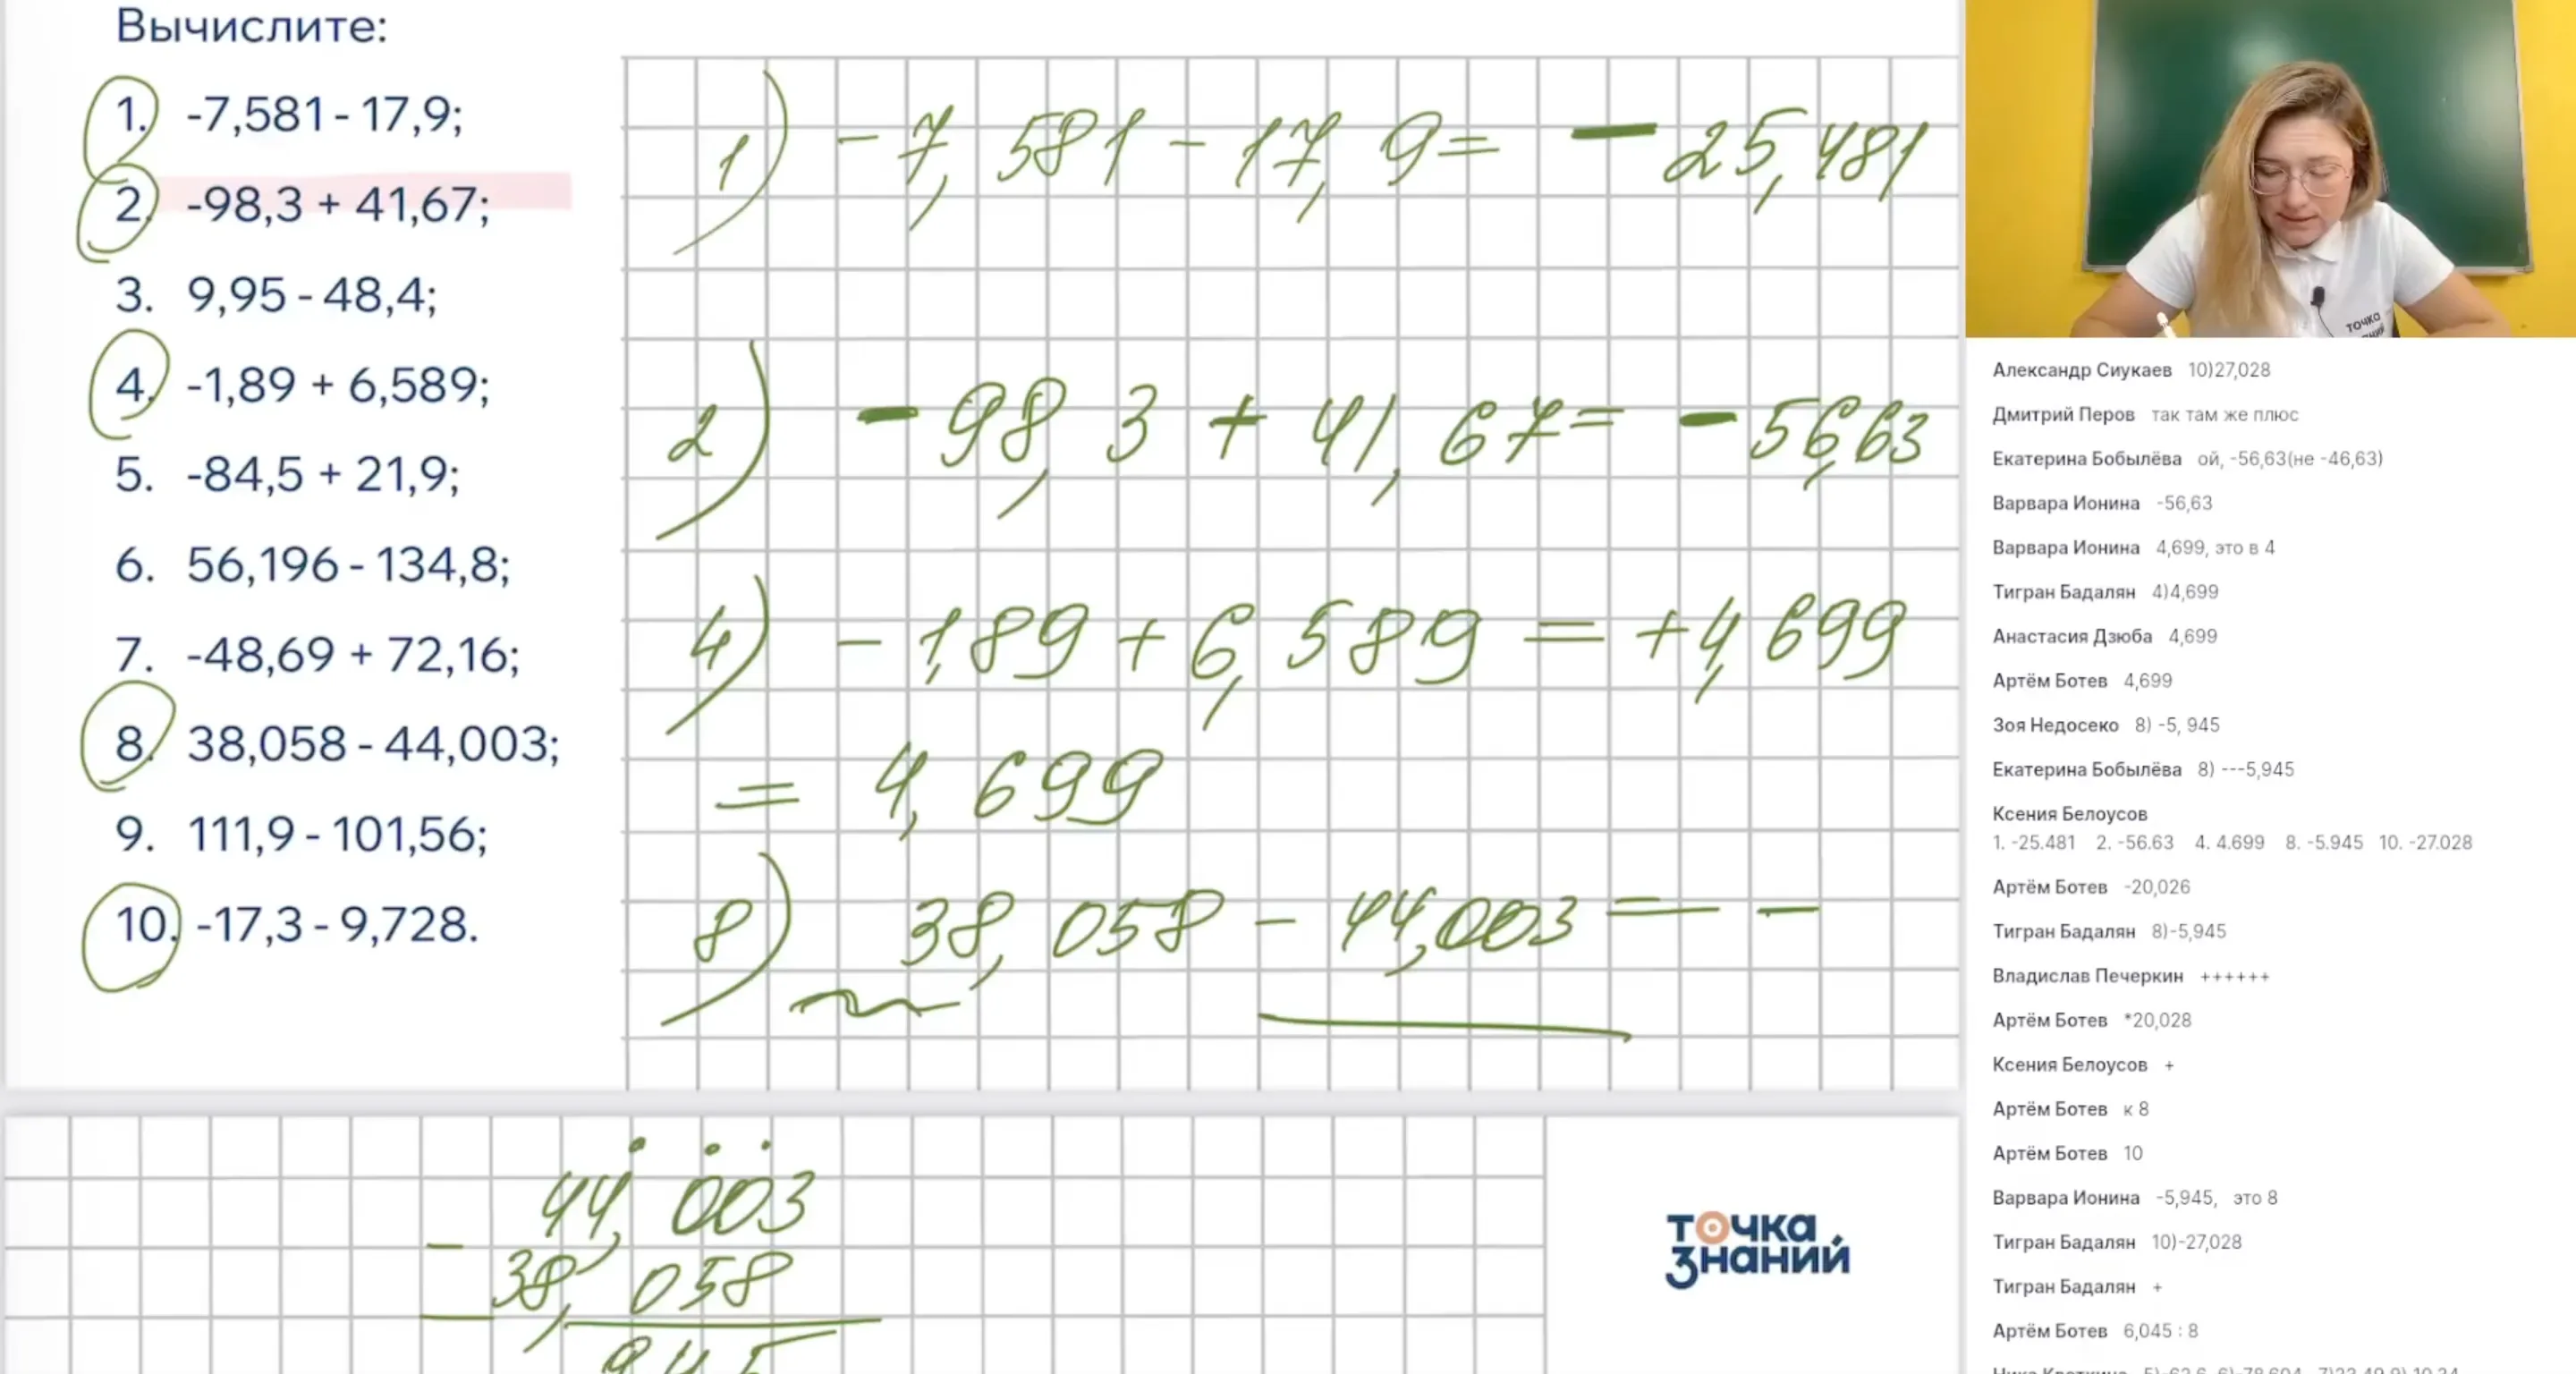 Вычислите:
1. -7,581 - 17,9;
2. -98,3 + 41,67;
3. 9,95 - 48,4;
4. -1,89 + 6,589;
5. -84,5 + 21,9;
6. 56,196 - 134,8;
7. -48,69 + 72,16;
8. 38,058 - 44,003;
9. 111,9 - 101,56;
10. -17,3 - 9,728.
1) -7,581 - 17,9 = -25,481
2) -98,3 + 41,67 = -56,63
4) -1,89 + 6,589 = +4,699
= 4,699
8) 38,058 - 44,003 = -
44,003
- 38,058
945
точка
знаний
точка
Александр Сиукаев 10)27,028
Дмитрий Перов так там же плюс
Екатерина Бобылёва ой, -56,63(не -46,63)
Варвара Ионина -56,63
Варвара Ионина 4,699, это в 4
Тигран Бадалян 4)4,699
Анастасия Дзюба 4,699
Артём Ботев 4,699
Зоя Недосеко 8) -5, 945
Екатерина Бобылёва 8) ---5,945
Ксения Белоусов
1. -25.481 2. -56.63 4. 4.699 8. -5.945 10. -27.028
Артём Ботев -20,026
Тигран Бадалян 8)-5,945
Владислав Печеркин ++++++
Артём Ботев *20,028
Ксения Белоусов +
Артём Ботев к 8
Артём Ботев 10
Варвара Ионина -5,945, это 8
Тигран Бадалян 10)-27,028
Тигран Бадалян +
Артём Ботев 6,045 : 8